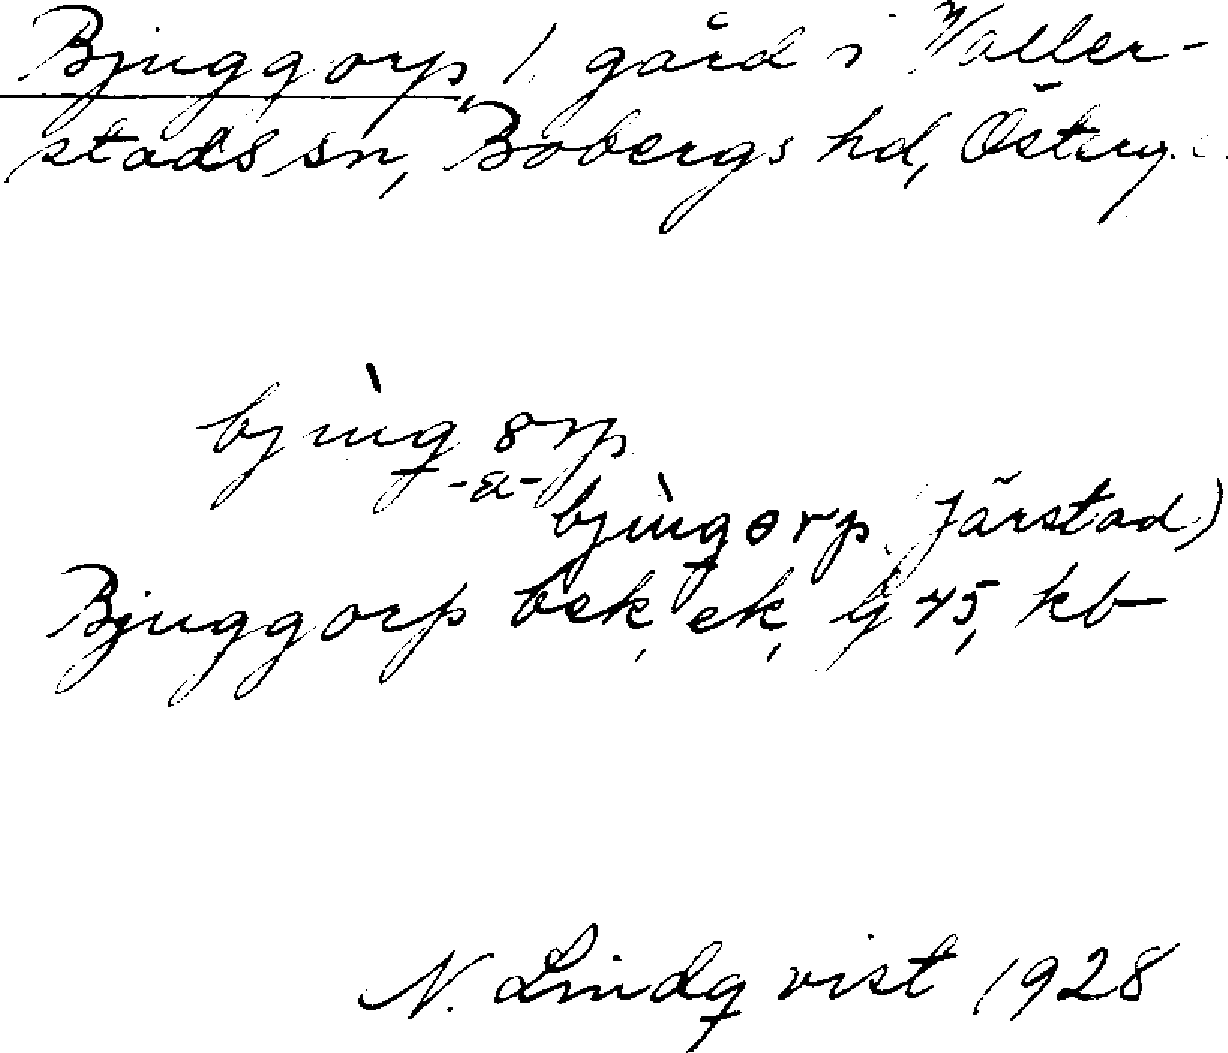 Bjuggorp, 1 gård i Valler-
stads sn, Bobergs hd, Österg.
bjùgorp
-a-
bjùgorp (Järstad)
Bjuggorp bek, ek, g 45, kb
N. Lindqvist 1928